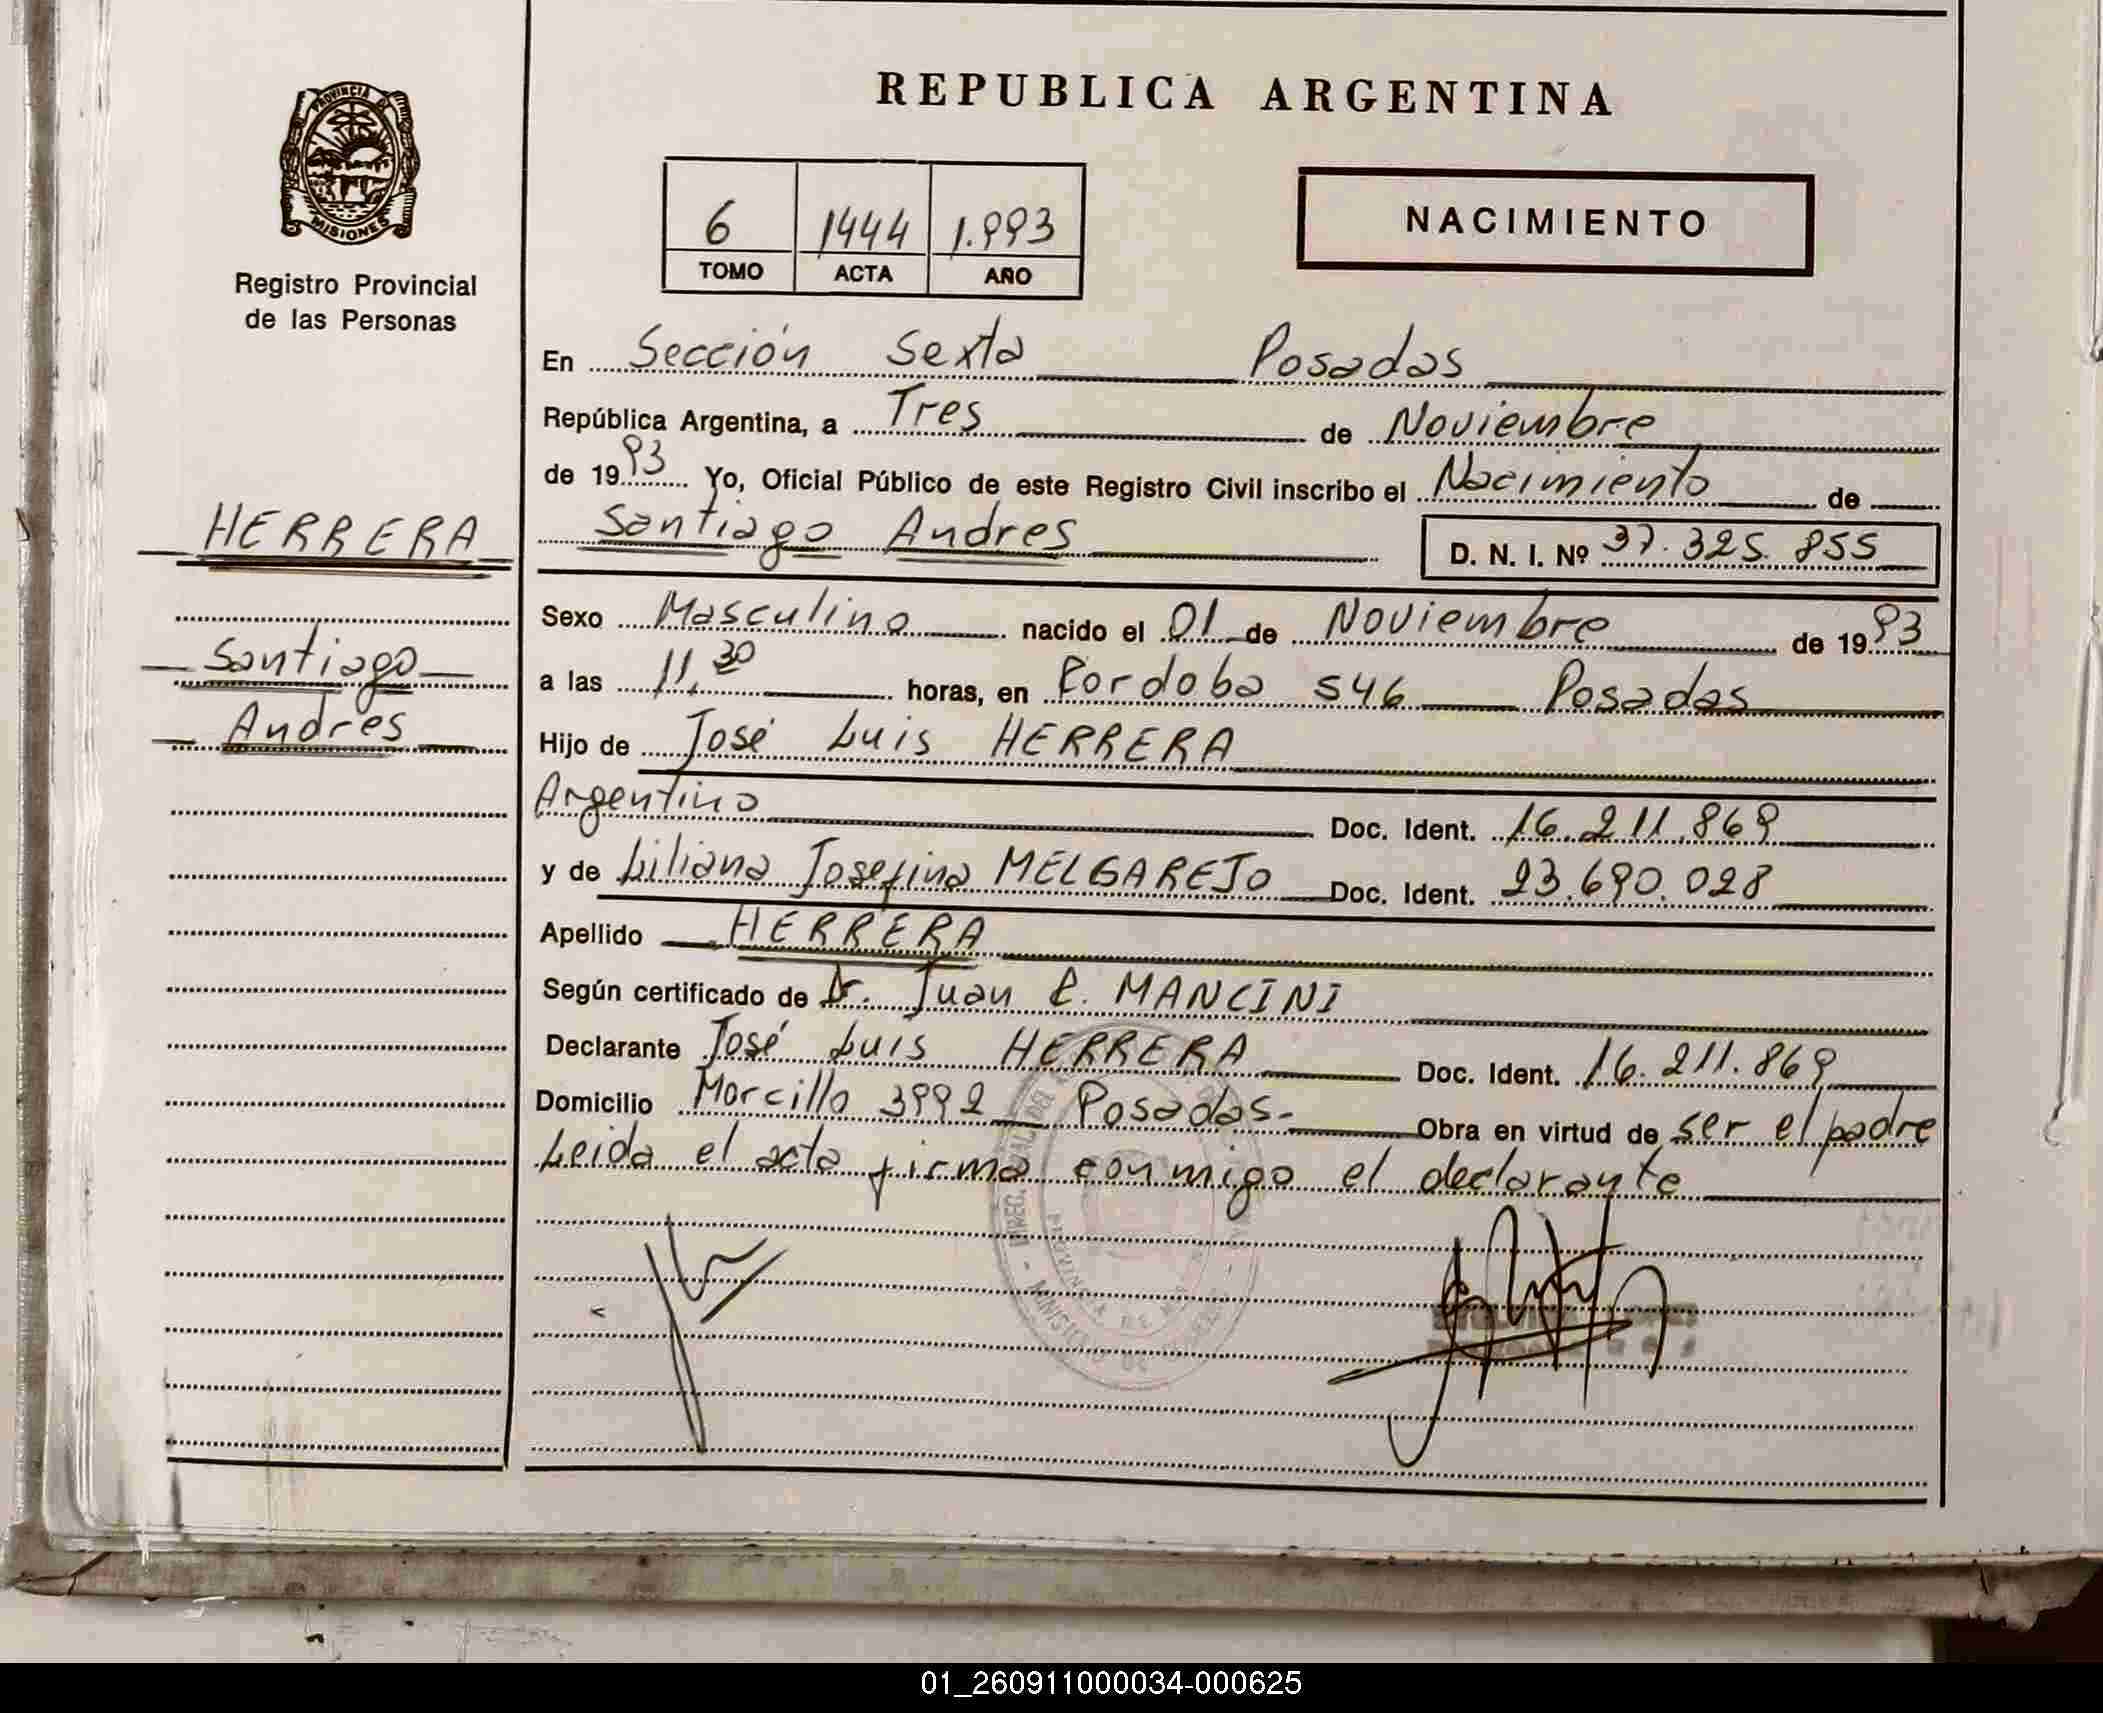 REPUBLICA ARGENTINA
PROVINCIA DE
MISIONES
Registro Provincial
de las Personas
6 1444 1.993
TOMO ACTA AÑO
NACIMIENTO
En Sección Sexta Posadas
República Argentina, a Tres de Noviembre
de 1993 Yo, Oficial Público de este Registro Civil inscribo el Nacimiento de
Santiago Andres D. N. I. Nº 37.325.855
HERRERA
Santiago
Andres
Sexo Masculino nacido el 01 de Noviembre de 1993
a las 11,30 horas, en Cordoba 546 Posadas
Hijo de José Luis HERRERA
Argentino Doc. Ident. 16.211.869
y de Liliana Josefina MELGAREJO Doc. Ident. 23.690.028
Apellido HERRERA
Según certificado de Dr. Juan C. MANCINI
Declarante José Luis HERRERA Doc. Ident. 16.211.869
Domicilio Morcillo 3992 Posadas.- Obra en virtud de ser el padre
Leida el acta firma conmigo el declarante
01_260911000034-000625